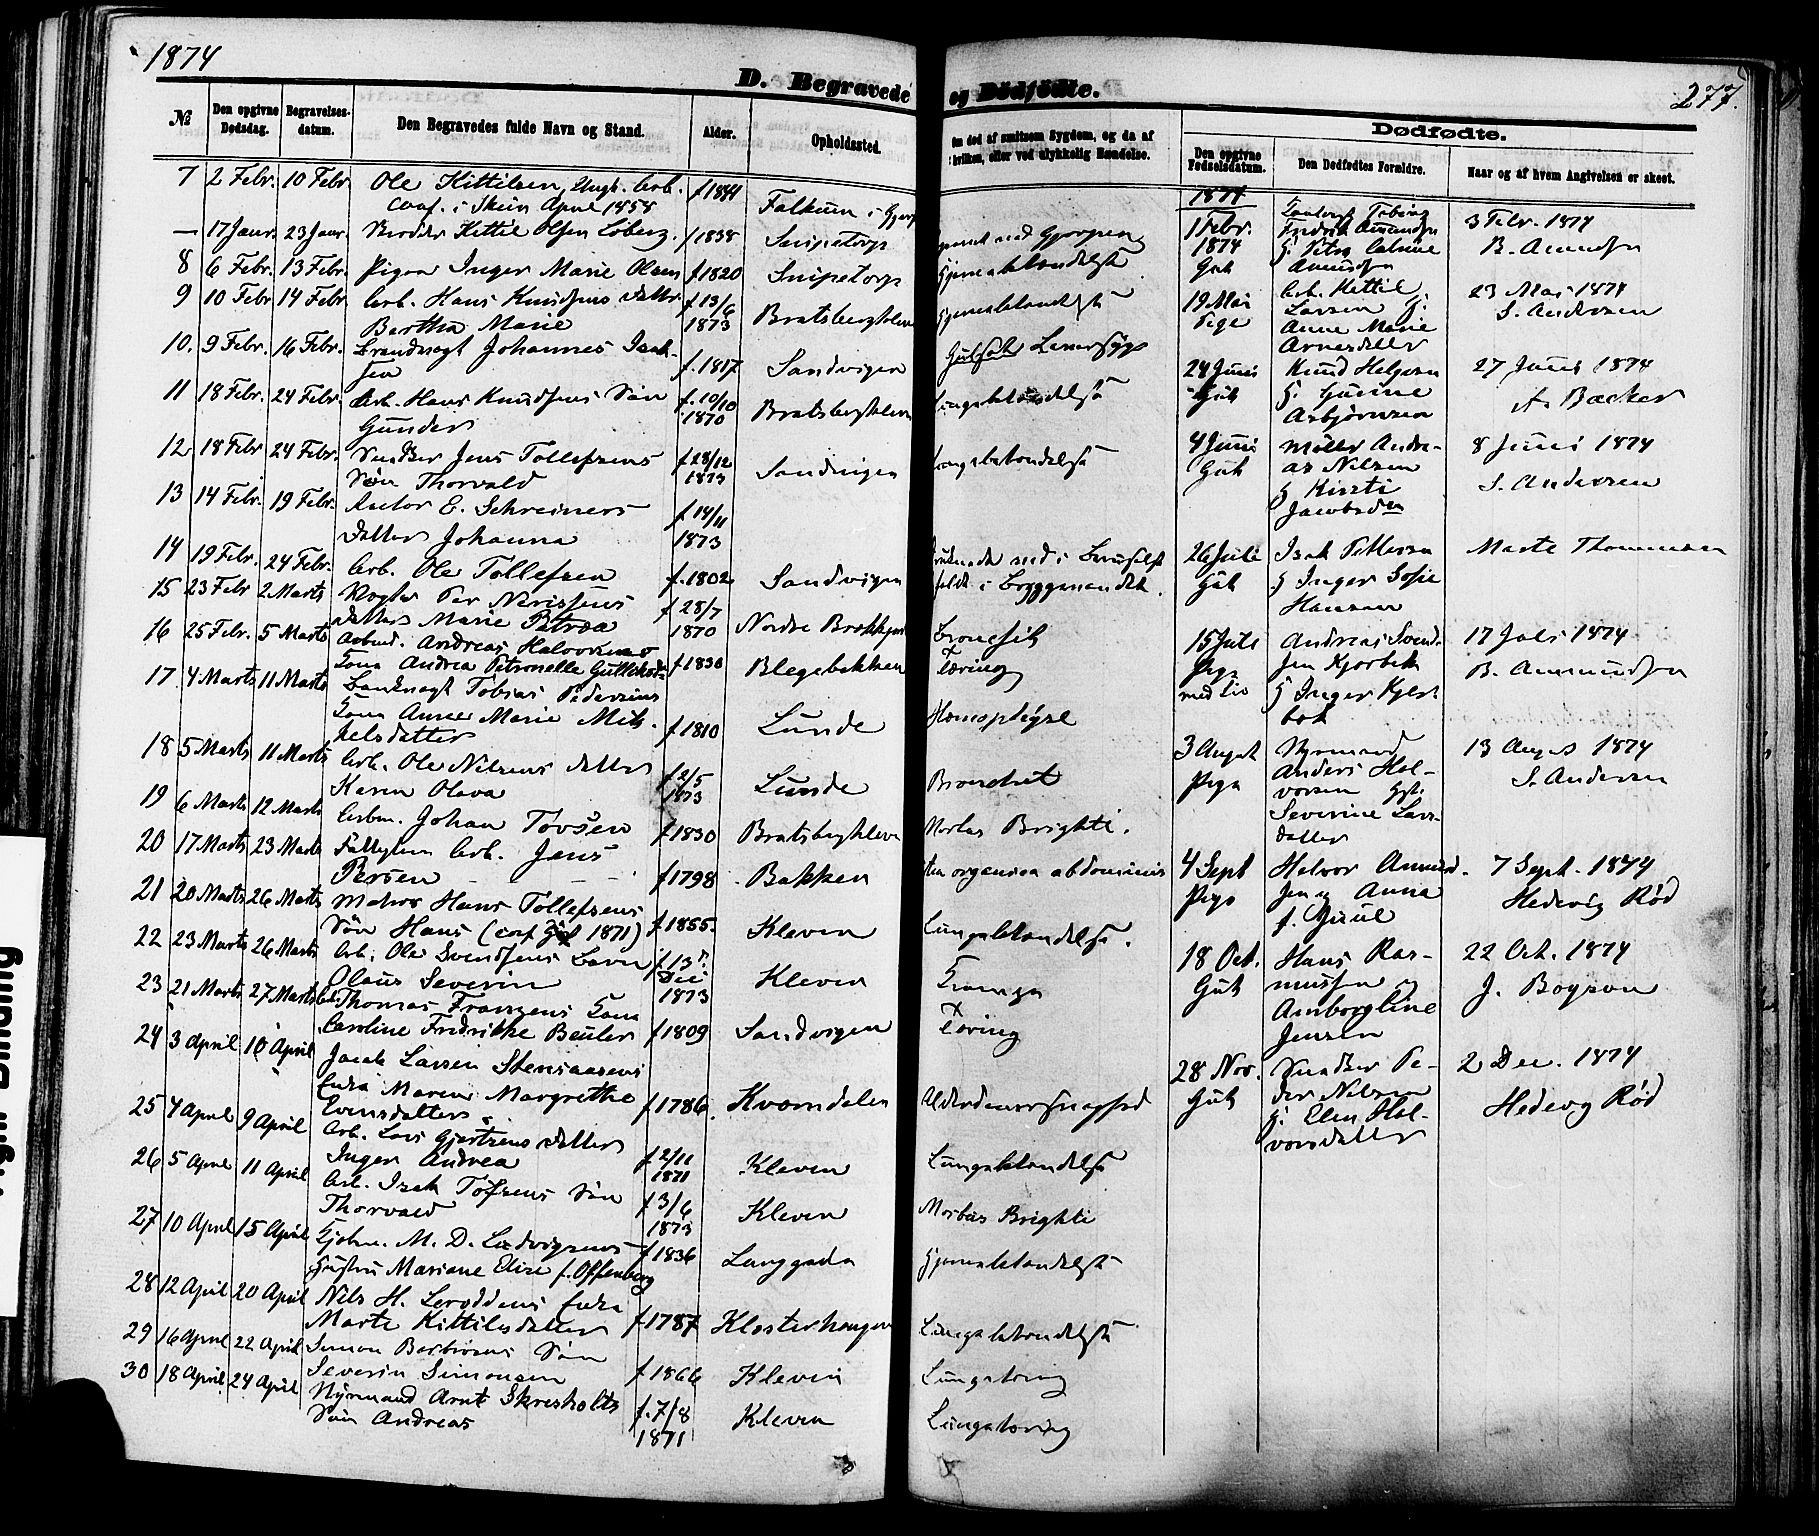 1874
D. Begravede og Dødfødte.
277.
№ Den opgivne Dødsdag. Begravelses-datum. Den Begravedes fulde Navn og Stand. Alder. Opholdssted. Om død af smitsom Sygdom, og da af hvilken, eller ved ulykkelig Hændelse.
7 2 Febr. 10 Febr. Ole Kittilsen, Ungk. Arb. f 1841 Falkum i Gjerp
conf. i Skien April 1858
— 17 Janr. 23 Janr. Kittil Olsen f 1838 Snipetorp
8 6 Febr. 13 Febr. Pigen Inger Marie Olsen f 1820 Snipetorp Hjernebetændelse
9 10 Febr 14 Febr. Arb. Hans Knudsens Datter f 13/6 1873 Bratsbergkleven Hjernebetændelse
Bertha Marie
10. 9 Febr. 16 Febr. Brandvagt Johannes Isak- f. 1817 Sandvigen Leversyge
sen
11 18 Febr. 24 Febr. Arb. Hans Knudsens Søn f. 10/10 1870 Bratsbergkleven Lungebetændelse
Gunder
12 18 Febr 24 Febr. Snedker Jens Tollefsens f 28/12 1873 Sandvigen Lungebetændelse
Søn Thorvald
13 14 Febr. 19 Febr. E. Schreiners f 14/11 1873
Datter Johanna
14 19 Febr. 24 Febr. Arb. Ole Tollefsen f. 1802 Sandvigen
15 23 Febr 2 Marts Per f 28/7 1870 Nordre Brekke
Datter Marie Petrea
16 25 Febr. 5 Marts Arbmd. Andreas Halvorsens f 1830 Blegebekken Tæring
Kona Andrea Petronelle
17 4 Marts 11 Marts Tobias Pedersens
Kona Anne Marie Mik- f 1810 Lunde Hæmoptyse
kelsdatter
18 5 Marts 11 Marts Arb. Ole Nilsens Datter f 2/5 1873 Lunde
Karen Olava
19 6 Marts 12 Marts Arbm. Johan Tovsen f 1830 Bratsbergkleven Morbus Brighti.
20 17 Marts 23 Marts Arb. Jens
Persen f 1798 Bakken organica abdominis
21 20 Marts 26 Marts Hans Tollefsens
Søn Hans (conf 1871) f 1855. Kleven Lungebetændelse.
22 23 Marts 26 Marts Arb. Ole Svendsens Barn f. 13 Dec 1873 Kleven Krampe
Olaus Severin
23 21 Marts 27 Marts Thomas Franzens Kona
Caroline Fredrikke Beuler f 1809 Sandvigen Tæring
24 3 April 10 April Jacob Larsen Stensaasens
Enke Maren Margrethe
Evensdatter. f 1786. Kverndalen Alderdomssvaghed
25 4 April 9 April Arb. Lars Gjertsens Datter
Inger Andrea f 2/11 1871 Kleven Lungebetændelse
26 5 April 11 April Arb. Isak Tofsens Søn
Thorvald f 3/6 1873 Kleven Morbus Brighti
27 10 April 15 April Kjøbm. M. D. Ludvigsens f 1836 Langgada Hjernebetændelse
Hustru Mariane Elise f. Offenberg
28 12 April 20 April Nils H. Enke
Marte Kittilsdatter f 1787 Klosterhougen Lungebetændelse
29 16 April 22 April Simon Søn
Severin Simonsen f 1866 Kleven Lungetæring
30 18 April 24 April Styrmand Arnt Skresholts
Søn Andreas f. 7/8 1871 Kleven Lungetæring
Dødfødte.
Den opgivne Fødselsdatum. Den Dødfødtes Forældre. Naar og af hvem Angivelsen er skeet.
1874
1 Febr. 1874 Gut Fredrik Amundsen g. Petra Cathrine Amundsen 3 Febr. 1874 B. Amundsen
19 Mai Pige Arb. Kittil Larsen g. Anne Marie Arnesdatter 23 Mai 1874 S. Andersen
24 Juni Gut Knud Helgesen g. Gunine Asbjørnsen 27 Juni 1874 A. Backer
4 Juni Gut Møller Andreas Nilsen g Kirsti Jacobsdtr 8 Juni 1874 S. Andersen
26 Juli Gut Isak Pettersen g Inger Sofie Hansen Marte Thommesen
15 Juli Pige med Liv Andreas Svendsen Kjørbek g Inger Kjerbek 17 Juli 1874 B. Ammundsen
3 August Pige Styrmand Anders Halvorsen Severine Larsdatter 13 August 1874 S. Andersen
4 Sept Pige Halvor Amundsen og Anna f. Juul 7 Sept. 1874 Hedevig Rød
18 Oct. Gut Hans Rasmussen og Amborgline Jensen 22 Oct. 1874 J. Boyson
28 Nov. Gut Snedker Peder Nilsen g. Elen Halvorsdatter 2 Dec. 1874 Hedevig Rød